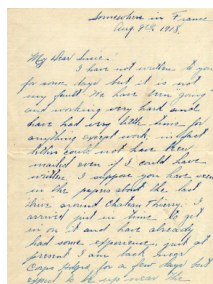 Somewhere in France
Aug 9th, 1918.
My Dear
I have not written to you
for some days but it is not
my fault. We have been going
and working very hard and
have had very little time for
anything except work in fact
letters could not have been
mailed even if I could have
written. I suppose you have seen
in the papers about the last
drive around Chateau Thierry. I
arrived just in time to get
in on it and have already
had some experience, just at
present I am back
for a few days but
expect to be up near the